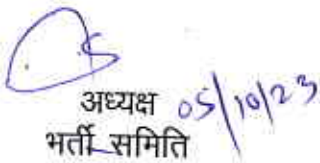 अध्यक्ष 05/10/23
भर्ती समिति